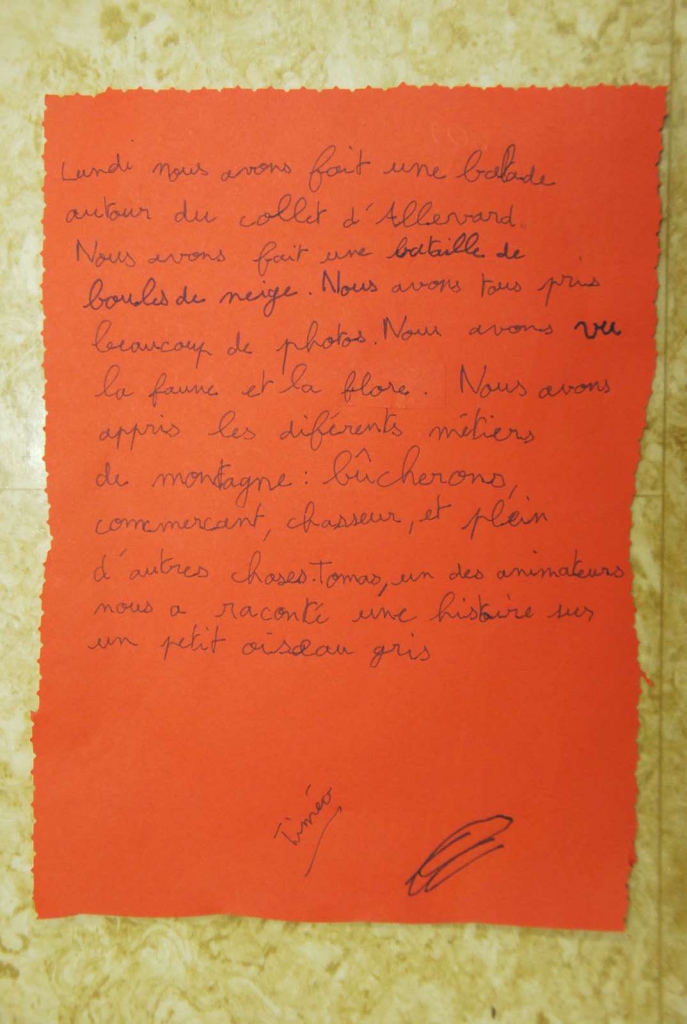 Lundi nous avons fait une balade
autour du collet d'Allevard.
Nous avons fait une bataille de
boules de neige. Nous avons tous pris
beaucoup de photos. Nous avons vu
la faune et la flore. Nous avons
appris les diférents métiers
de montagne : bûcherons,
commercant, chasseur, et plein
d'autres choses. Tomas, un des animateurs
nous a raconté une histoire sur
un petit oiseau gris
Timéo